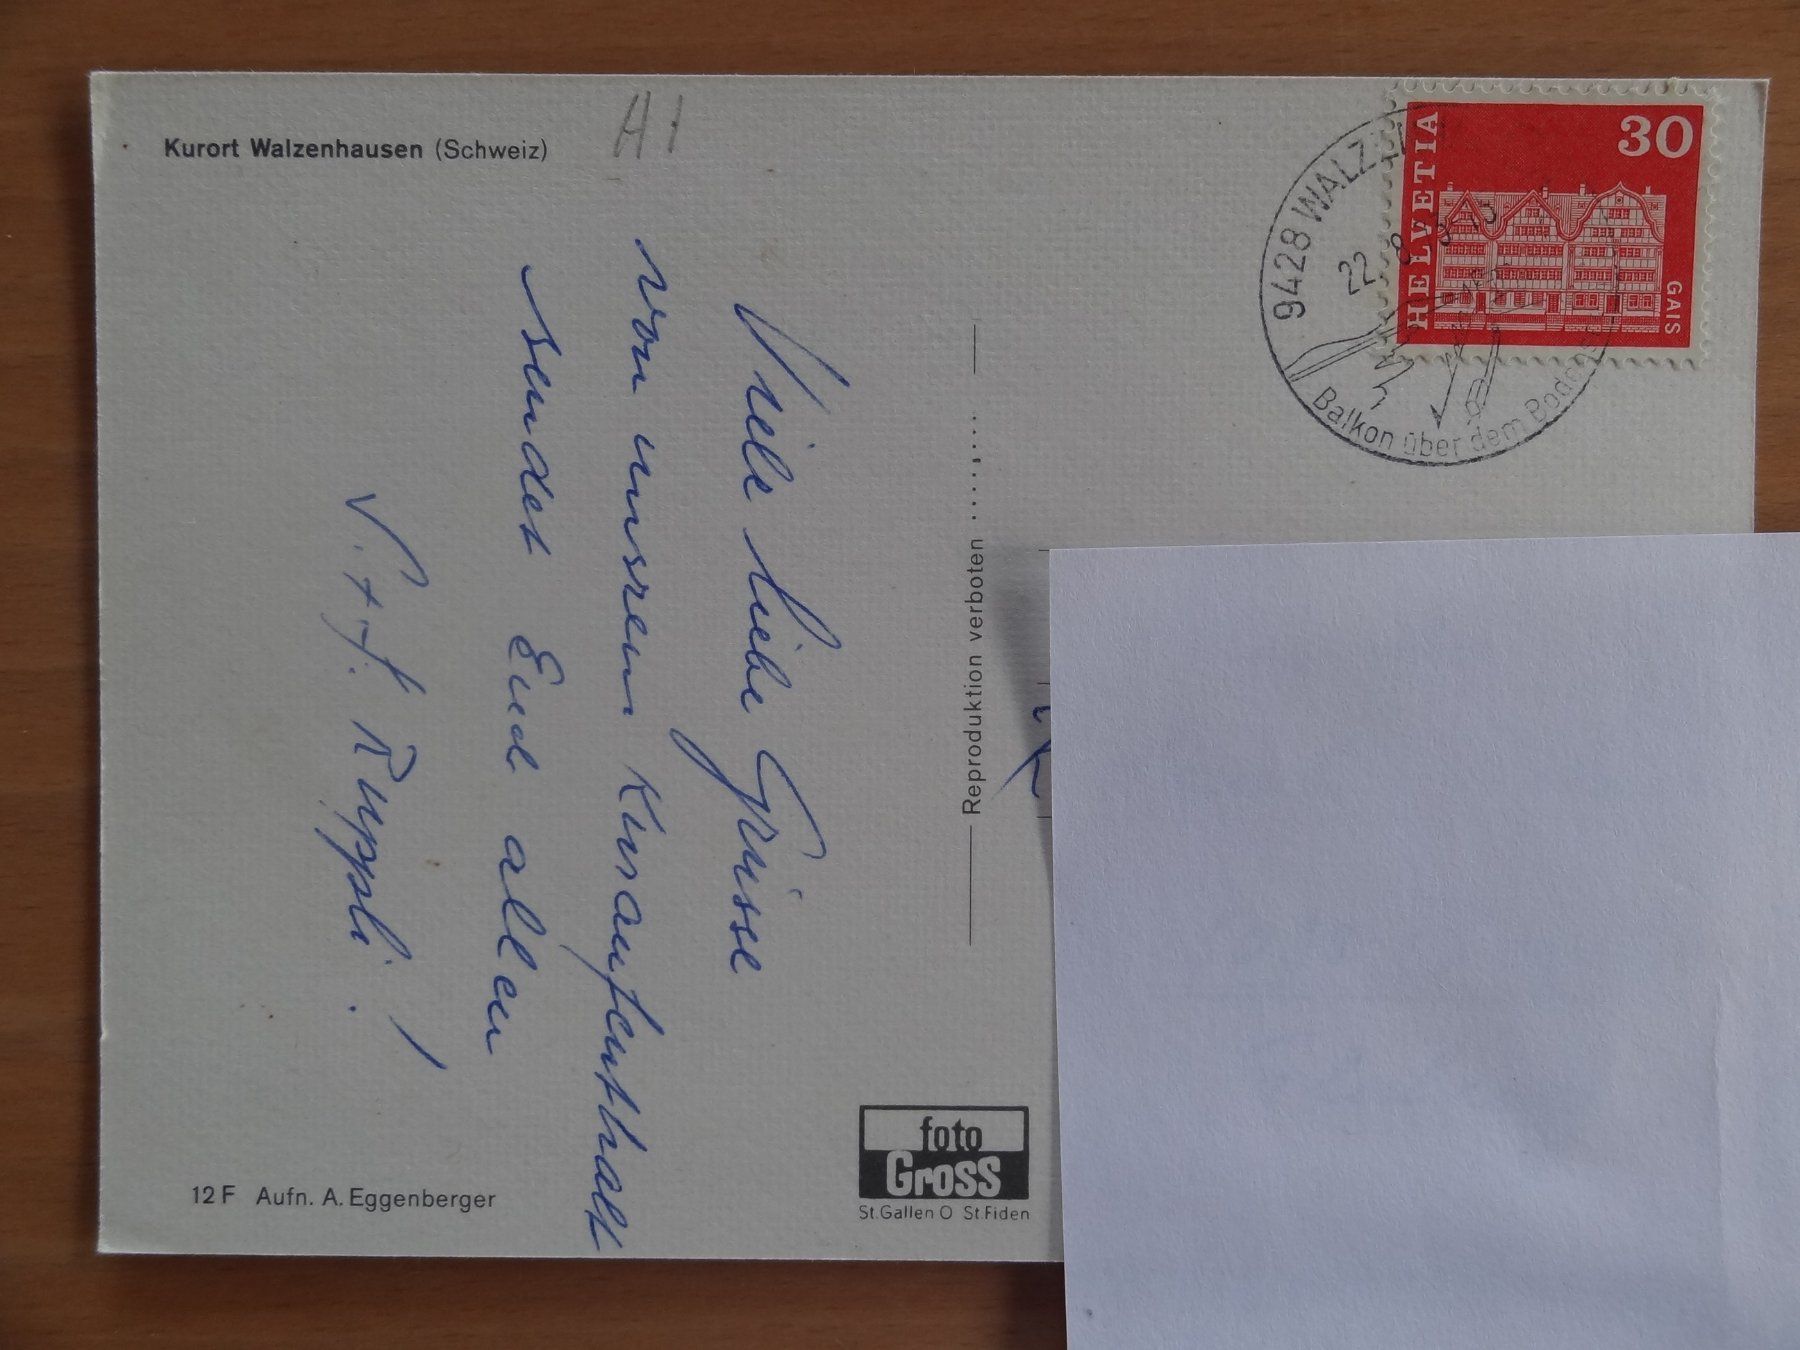 Kurort Walzenhausen (Schweiz)
A1
Viele liebe Grüsse
von unserem Kuraufenthalt
sendet Euch allen
V. + J. Ruppli. !
12 F Aufn. A. Eggenberger
Reproduktion verboten
foto
Gross
St.Gallen O St.Fiden
9428 WALZ
22. 8.
Balkon über dem Bodensee
HELVETIA
30
GAIS